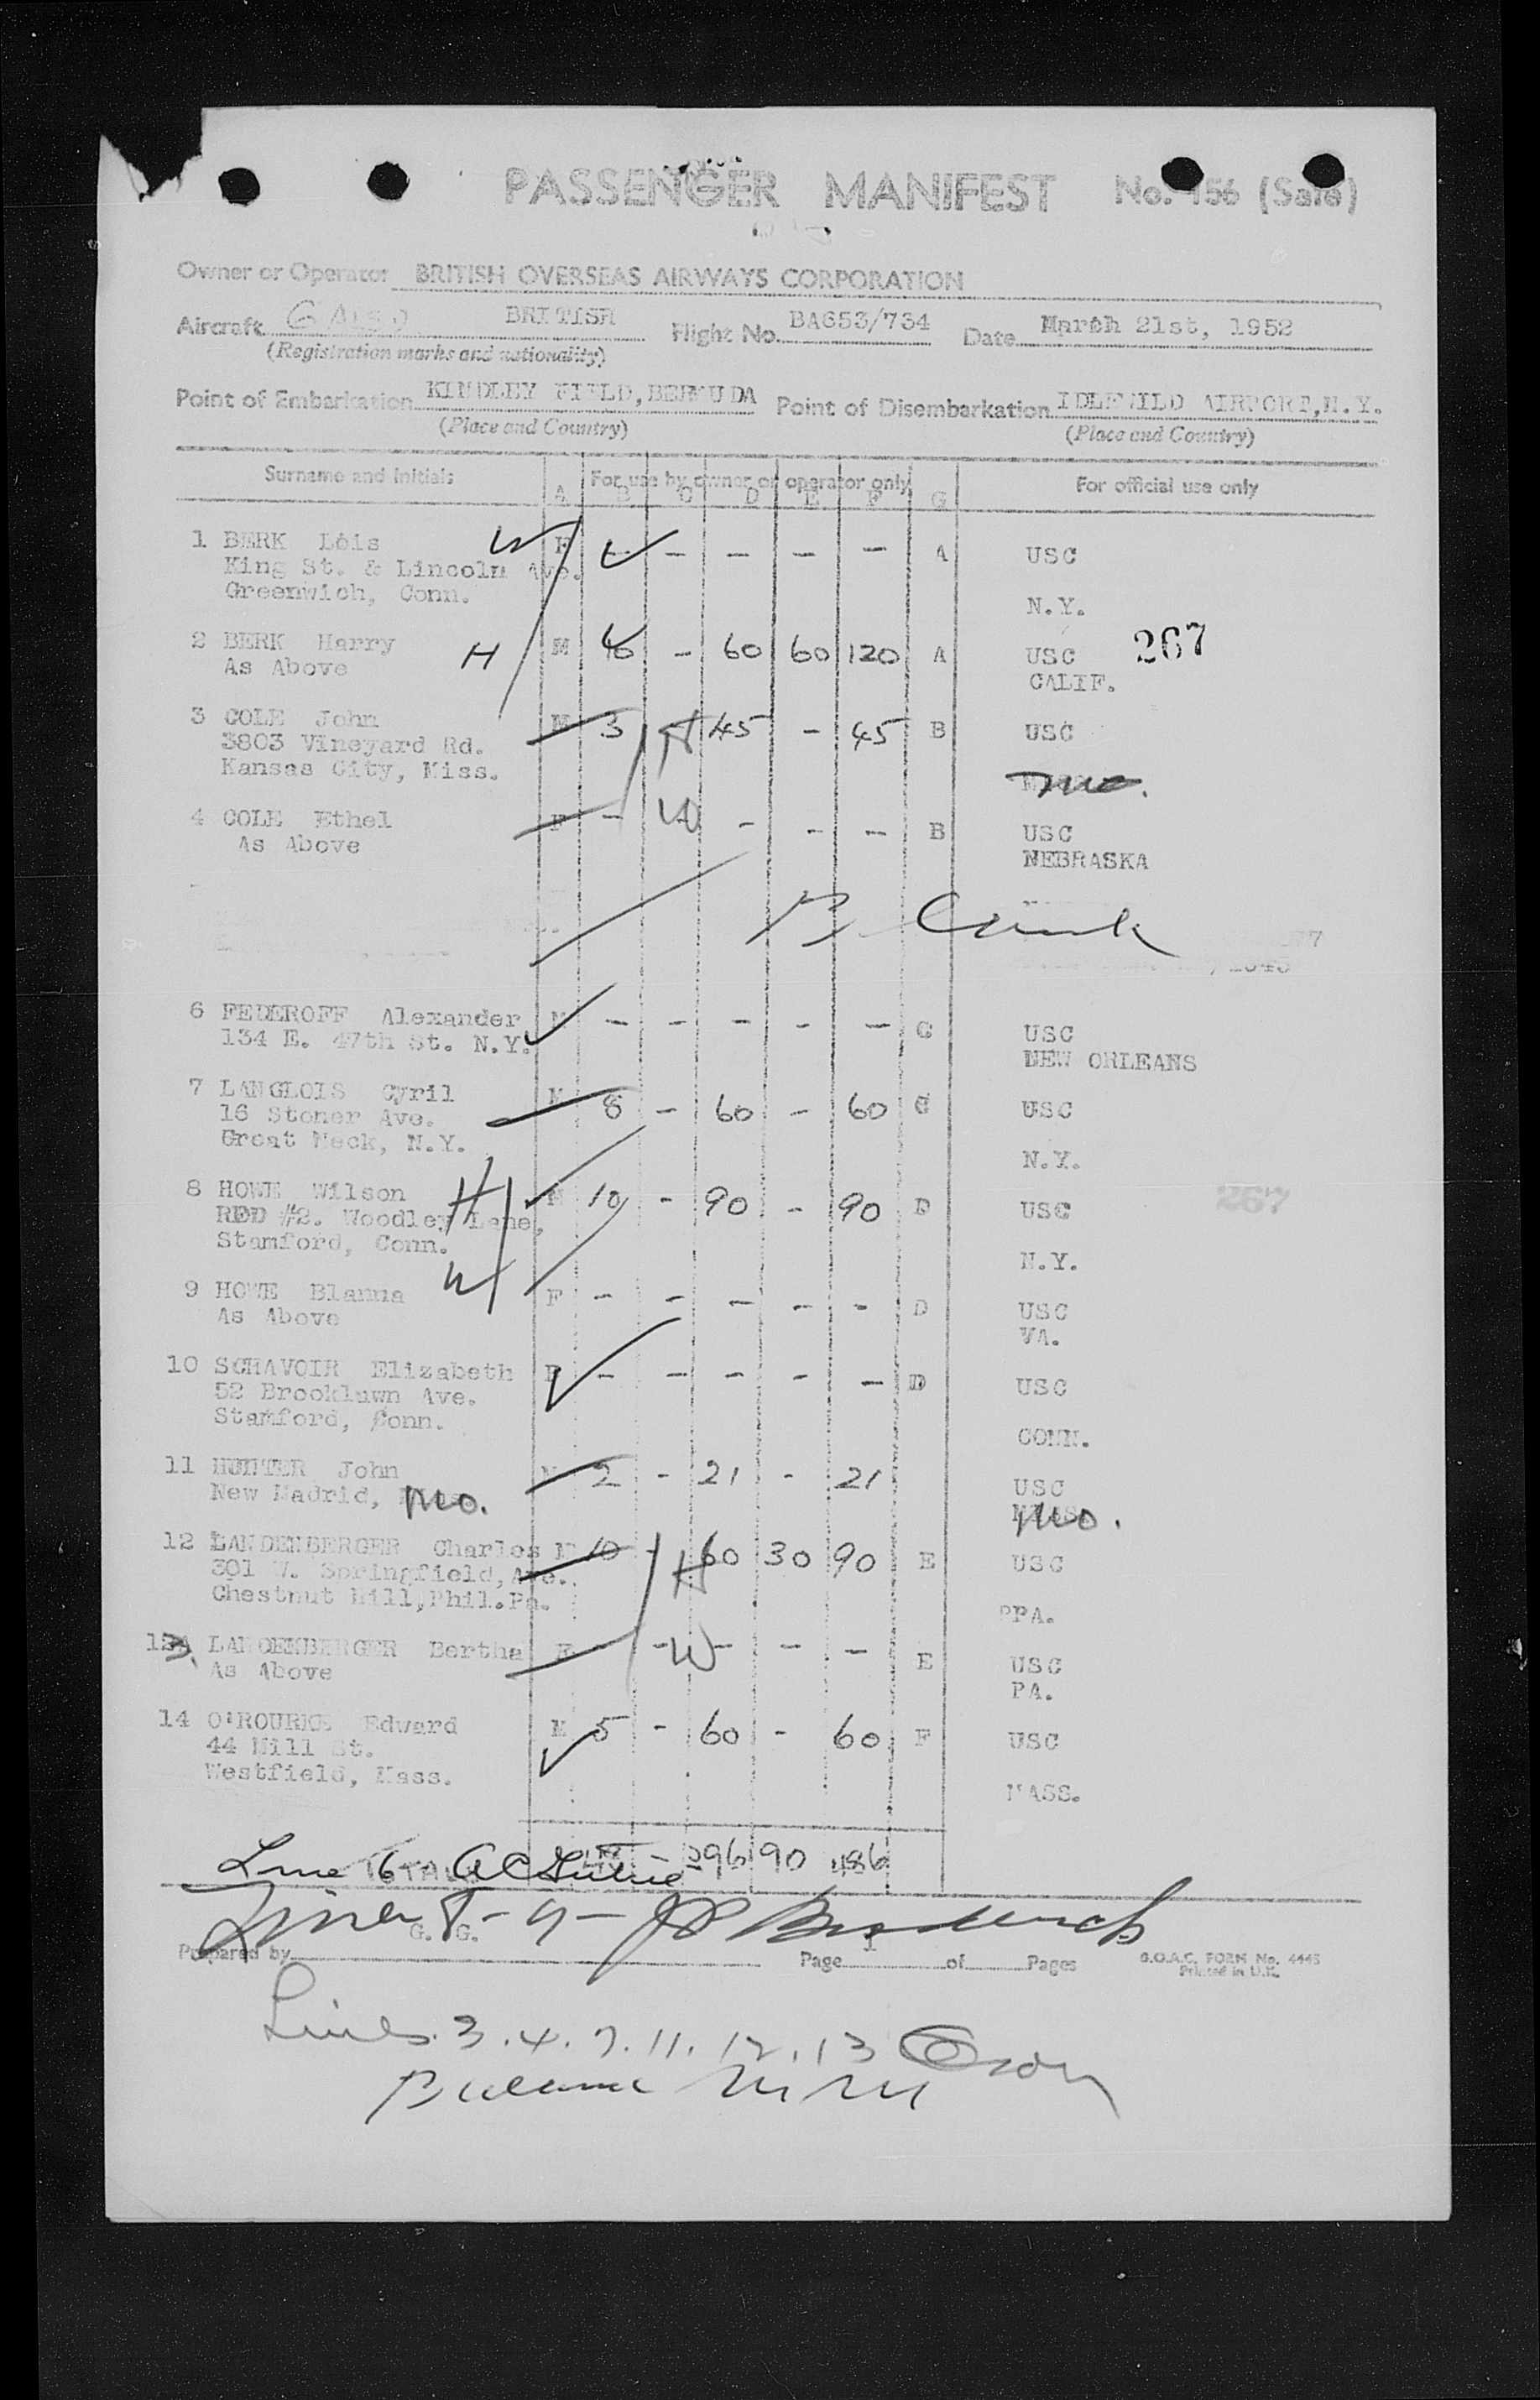 PASSENGER MANIFEST No. 456 (Sale)
Owner or Operator BRITISH OVERSEAS AIRWAYS CORPORATION
Aircraft BRITISH Flight No. BA653/734 Date March 21st, 1952
(Registration marks and nationality)
Point of Embarkation KINDLEY FIELD, BERMUDA Point of Disembarkation IDLEWILD AIRPORT, N.Y.
(Place and Country) (Place and Country)
Surname and Initials For use by owner or operator only For official use only
A B C D E F G
1 BERK Lois W F - - - - - A USC
King St. & Lincoln Ave.
Greenwich, Conn. N.Y.
2 BERK Harry H M - 60 60 120 A USC 267
As Above CALIF.
3 COLE John M 3 H 45 - 45 B USC
3803 Vineyard Rd.
Kansas City, Miss. Mo.
4 COLE Ethel F - W - - - B USC
As Above NEBRASKA
6 FEDEROFF Alexander M - - - - - C USC
134 E. 47th St. N.Y. NEW ORLEANS
7 LANGLOIS Cyril M 8 - 60 - 60 C USC
16 Stoner Ave.
Great Neck, N.Y. N.Y.
8 HOWE Wilson H M 10 - 90 - 90 D USC 267
RED #2. Woodley Lane,
Stamford, Conn. N.Y.
9 HOWE Blanna W F - - - - - D USC
As Above VA.
10 SCHAVOIR Elizabeth F - - - - - D USC
52 Brooklawn Ave.
Stamford, Conn. CONN.
11 HUNTER John M 2 - 21 - 21 USC
New Madrid, Mo. Mo.
12 LANDENBERGER Charles M 10 - H 60 30 90 E USC
301 W. Springfield, Ave.
Chestnut Hill, Phil. Pa. PA.
13 LANDENBERGER Bertha F - - W - - - E USC
As Above PA.
14 O'ROURKE Edward M 5 - 60 - 60 F USC
44 Mill St.
Westfield, Mass. MASS.
Line 6 TOTAL - 396 90 486
Lines 8-9-
G. G.
Prepared by Page 1 of Pages B.O.A.C. FORM No. 4445
Printed in U.K.
Lines 3.4.7.11.12.13